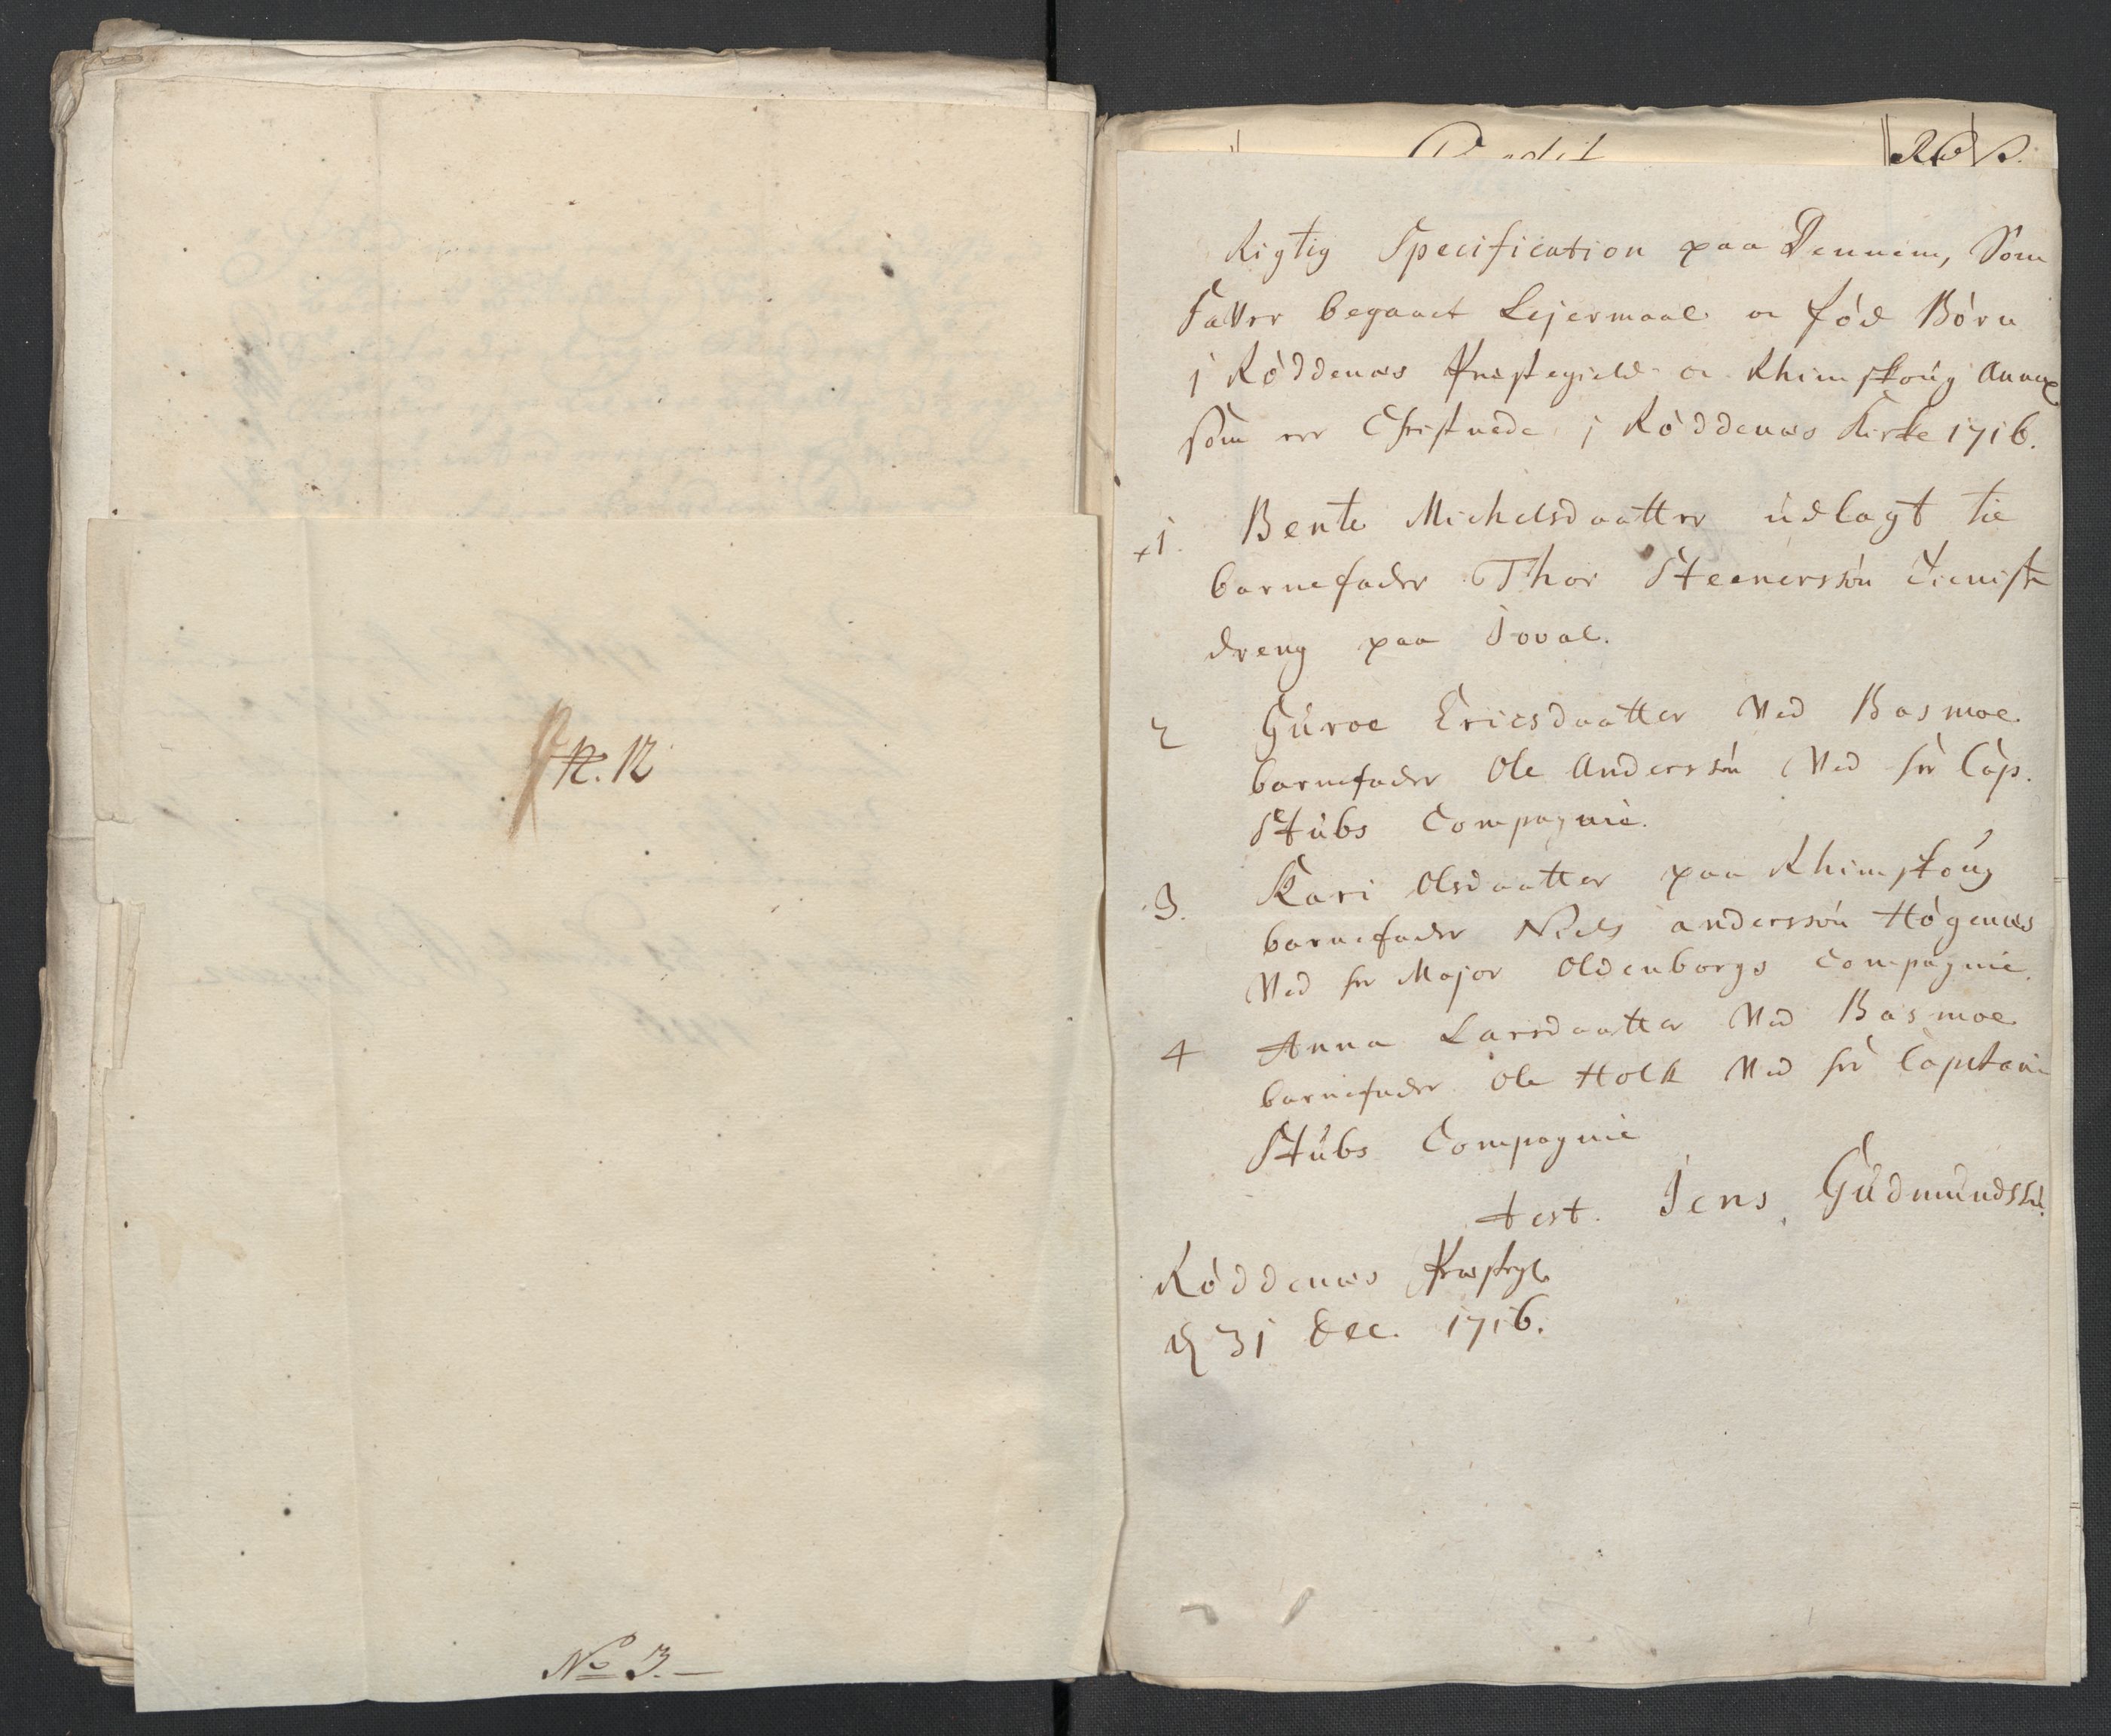 N. 12
No 3.
Rigtig Specification paa Dennem, Som
hafver begaaet Lejermaal oc fød Børn
i Røddenæs Præstegield oc Rhimskoug Annex
som er Christnede i Røddenæs Kirke 1716.
+1. Bente Michelsdaatter udlagt til
barnefader Thor Steenerssøn Tieniste
dreng paa Joval.
2 Guroe Ericsdaatter Ved Basmoe
barnefader Ole Anderssøn Ved hr Cap.
Stubs Compagnie.
3. Kari Olsdaatter paa Rhimskoug
barnefader Niels anderssøn Høgenæs
Ved hr Major Oldenborgs Compagnie.
4 Anna Larsdaatter Ved Basmoe
barnefader Ole Holk Ved hr Capitain
Stubs Compagnie
test. Jens Gudmundssøn.
Røddenæs Præstegl
d 31 Dec. 1716.